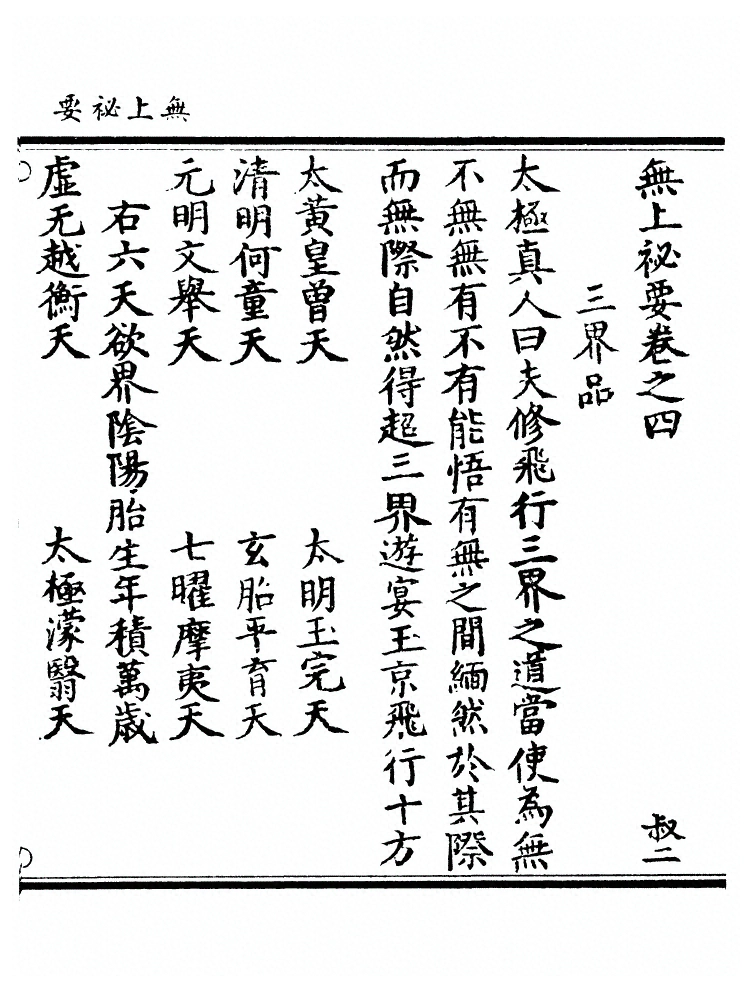 無上祕要
無上祕要卷之四 叔二
三界品
太極真人曰夫修飛行三界之道當使為無
不無無有不有能悟有無之間緬然於其際
而無際自然得超三界遊宴玉京飛行十方
太黃皇曾天 太明玉完天
清明何童天 玄胎平育天
元明文舉天 七曜摩夷天
右六天欲界陰陽胎生年積萬歲
虛无越衡天 太極濛翳天